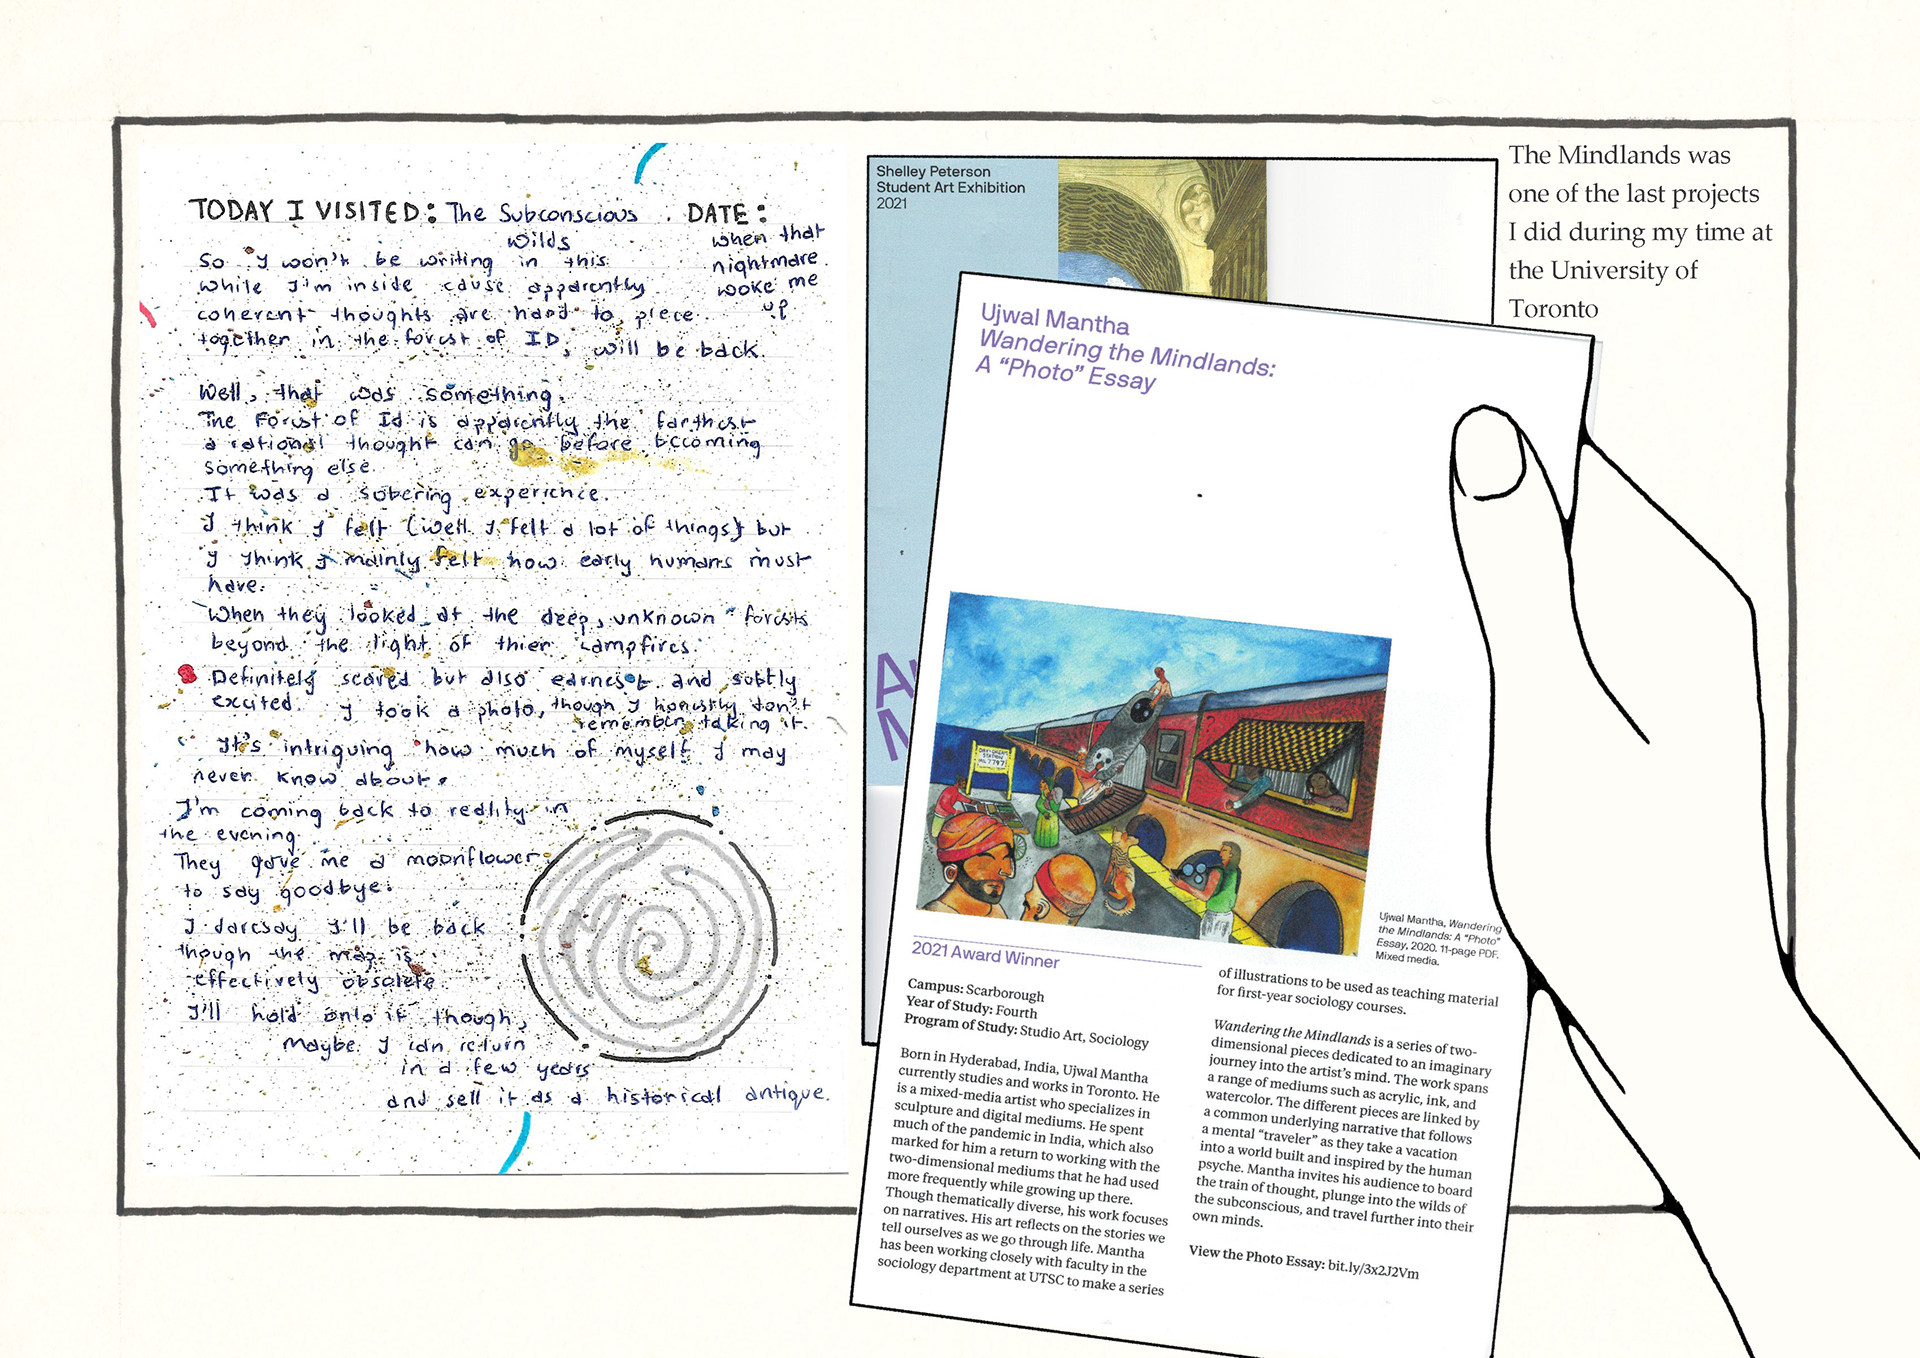 TODAY I VISITED: The Subconscious wilds
DATE: when that
nightmare
woke me
up
So I won't be writing in this
while I'm inside cause apparently
coherent thoughts are hard to piece
together in the forest of ID, will be back.
Well, that was something.
The Forest of Id is apparently the farthest
a rational thought can go before becoming
something else.
It was a sobering experience.
I think I felt (well I felt a lot of things) but
I think I mainly felt how early humans must
have.
When they looked at the deep, unknown forests
beyond the light of thier campfires.
Definitely scared but also earnest and subtly
excited. I took a photo, though I honestly don't
remember taking it.
It's intriguing how much of myself I may
never know about.
I'm coming back to reality in
the evening.
They gave me a moonflower
to say goodbye.
I daresay I'll be back
though the map is
effectively obsolete.
I'll hold onto it though,
Maybe I can return
in a few years
and sell it as a historical antique.
Shelley Peterson
Student Art Exhibition
2021
Ujwal Mantha
Wandering the Mindlands:
A “Photo” Essay
DAY-DREAM
STATION
Ujwal Mantha, Wandering
the Mindlands: A “Photo”
Essay, 2020. 11-page PDF.
Mixed media.
2021 Award Winner
Campus: Scarborough
Year of Study: Fourth
Program of Study: Studio Art, Sociology
Born in Hyderabad, India, Ujwal Mantha
currently studies and works in Toronto. He
is a mixed-media artist who specializes in
sculpture and digital mediums. He spent
much of the pandemic in India, which also
marked for him a return to working with the
two-dimensional mediums that he had used
more frequently while growing up there.
Though thematically diverse, his work focuses
on narratives. His art reflects on the stories we
tell ourselves as we go through life. Mantha
has been working closely with faculty in the
sociology department at UTSC to make a series
of illustrations to be used as teaching material
for first-year sociology courses.
Wandering the Mindlands is a series of two-
dimensional pieces dedicated to an imaginary
journey into the artist's mind. The work spans
a range of mediums such as acrylic, ink, and
watercolor. The different pieces are linked by
a common underlying narrative that follows
a mental “traveler” as they take a vacation
into a world built and inspired by the human
psyche. Mantha invites his audience to board
the train of thought, plunge into the wilds of
the subconscious, and travel further into their
own minds.
View the Photo Essay: bit.ly/3x2J2Vm
The Mindlands was
one of the last projects
I did during my time at
the University of
Toronto